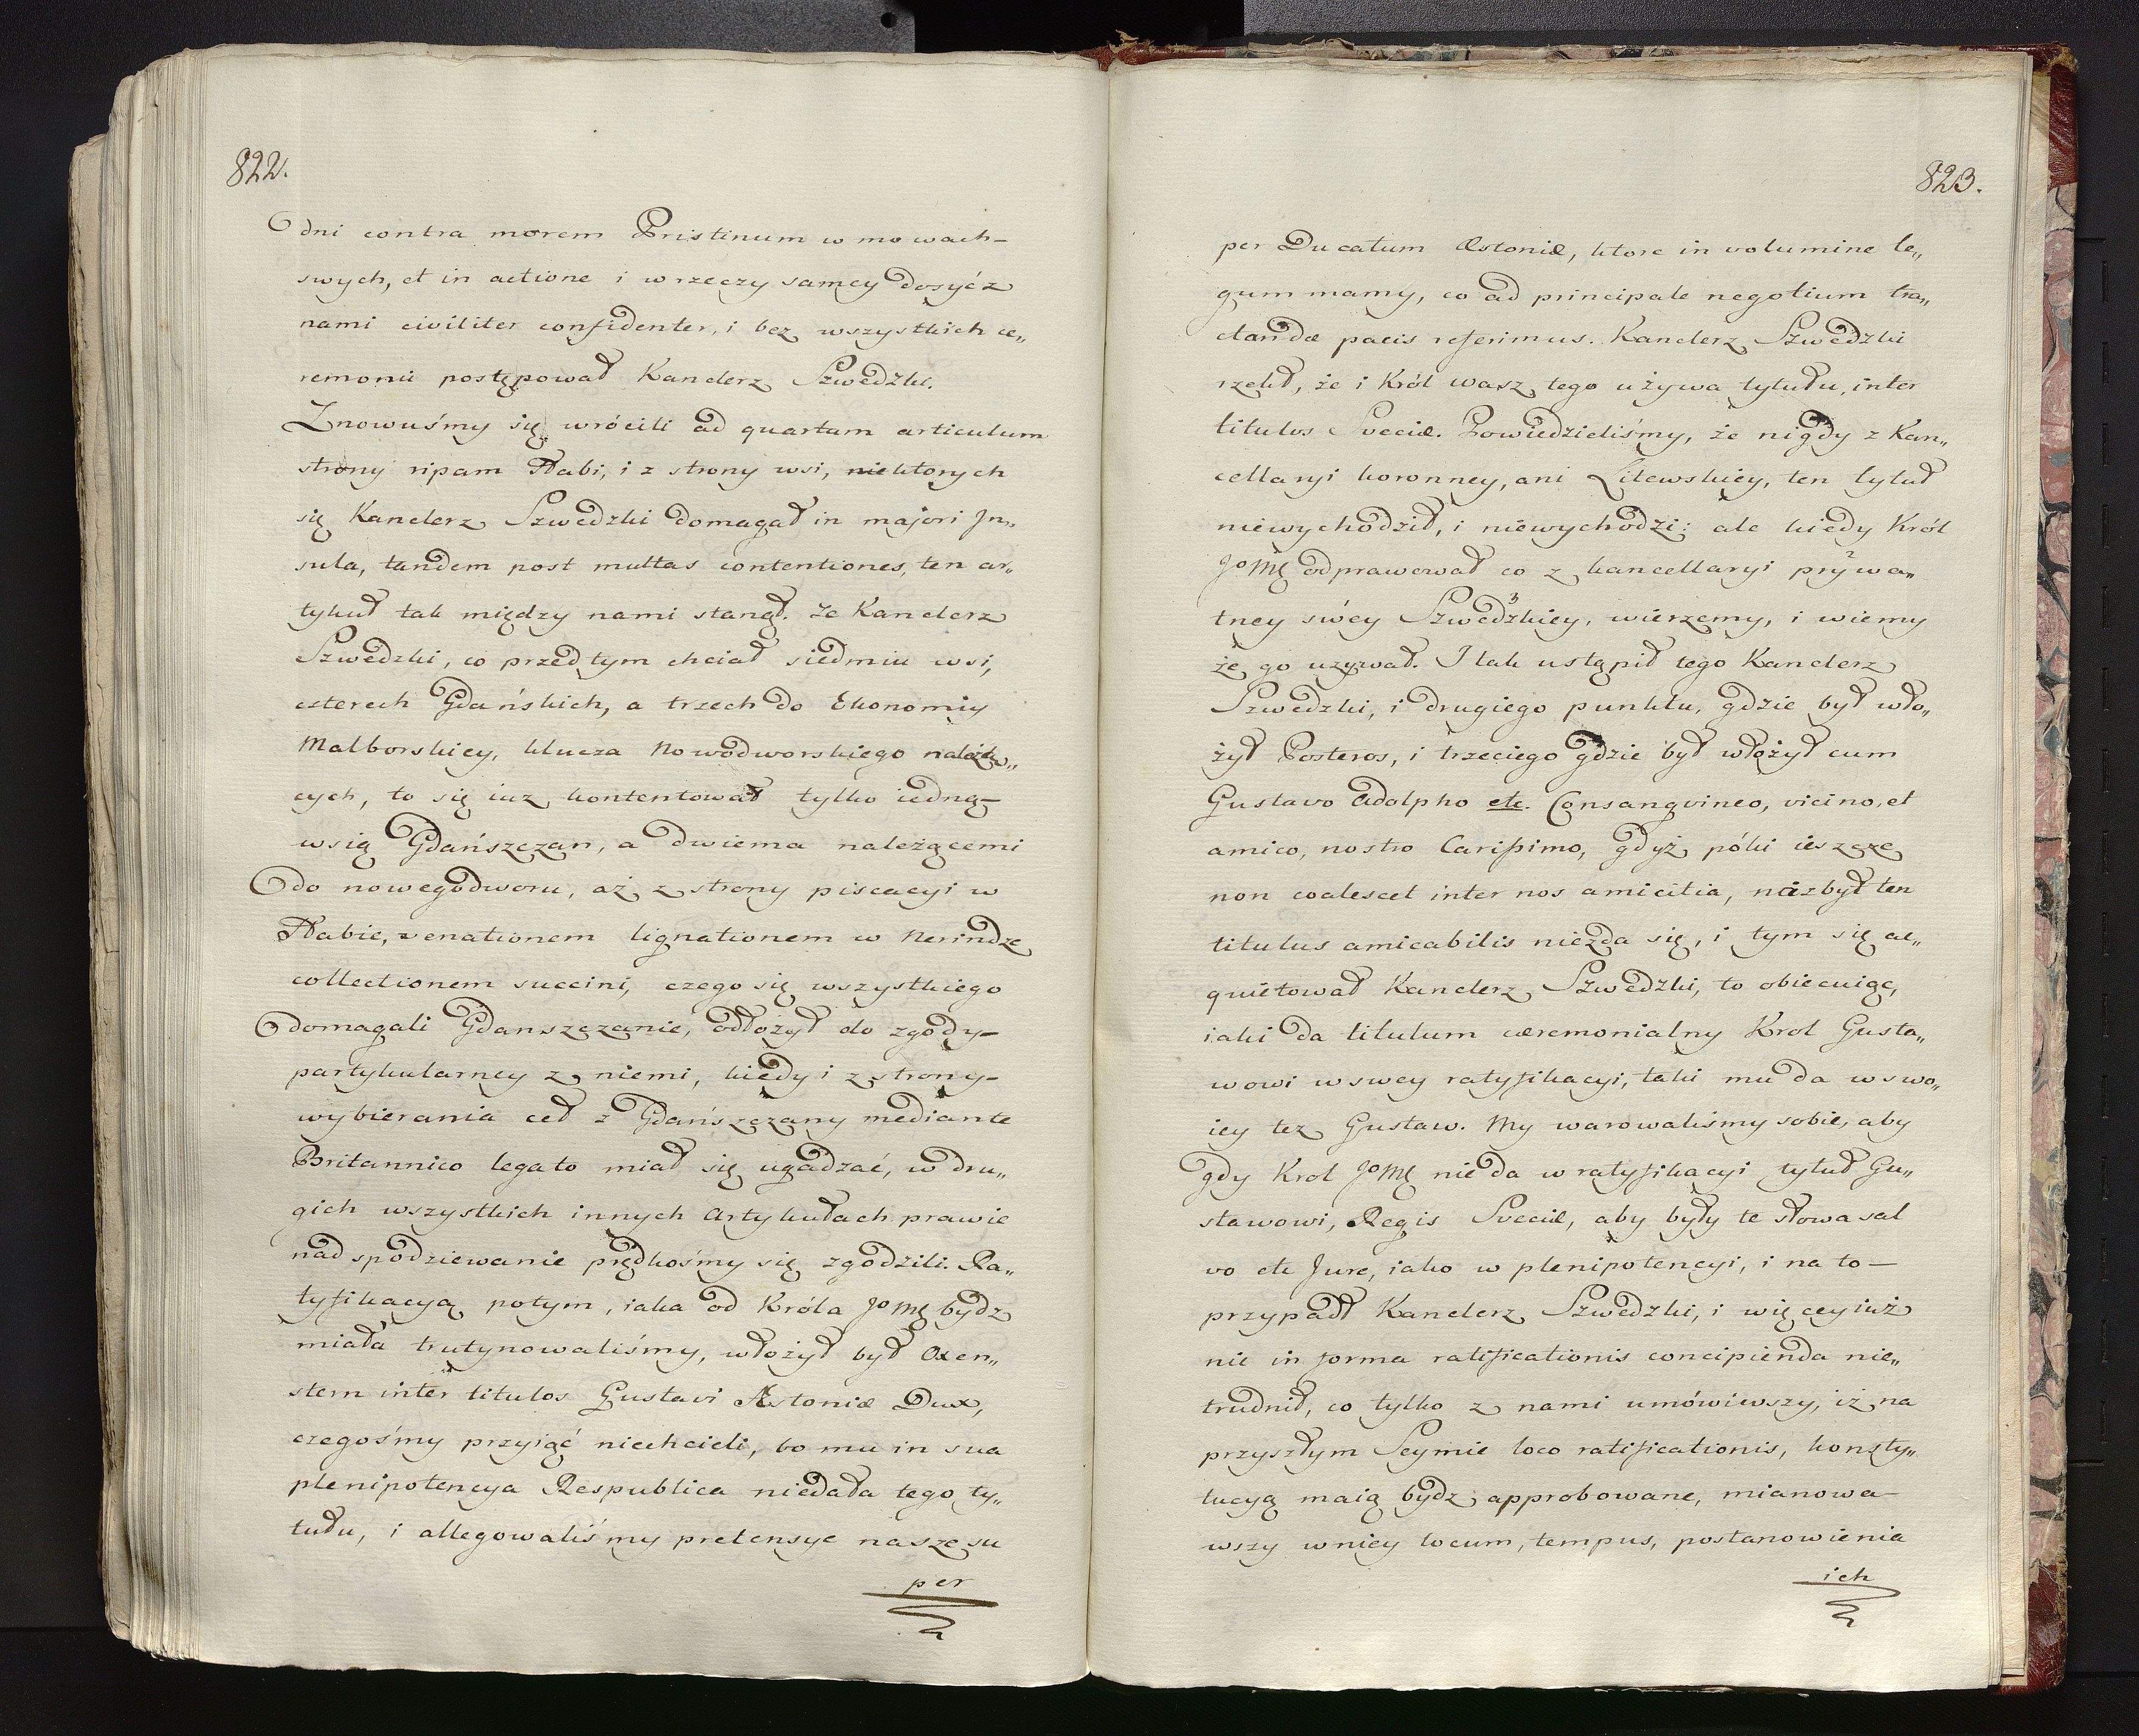 822.
dni contra morem Pristinum w mowach-
swych, et in actione i w rzeczy samey dosyć z
nami civiliter confidenter, i bez wszystkich ce„
remonii postępował Kanclerz Szwedzki.
Znowuśmy się wrócili ad quartum articulum
strony ripam Habi, i z strony wsi, niektorych
się Kanclerz Szwedzki domagał in majori Jn„
sula, tandem post multas contentiones, ten ar„
tykuł tak między nami stanął. że Kanclerz
Szwedzki, co przed tym chciał siedmiu wsi,
czterech Gdańskich, a trzech do Ekonomiy
Malborskiey, klucza Nowodworskiego należą„
cych, to się iuz kontentował tylko iedną-
wsią Gdańszczan, a dwiema należącemi
do nowegodworu, aż z strony piscacyi w
Habie, venationem lignationem w Nerindze
collectionem succini, czego się wszystkiego
domagali Gdanszczanie, odłożył do zgody-
partykularney z niemi, kiedy i z strony-
wybierania ceł z Gdańszczany mediante
Britannico legato miał się ugadzać, w dru„
gich wszystkich innych Artykułach prawie
nad spodziewanie prędkośmy się zgodzili. Ra„
tyfikacyą potym, iaka od Króla JoMę bydz
miała trutynowaliśmy, włożył był Oxen„
stern inter titulos Gustavi Æstoniæ Dux,
czegośmy przyiąć niechcieli, bo mu in sua
plenipotencya Respublica niedała tego ty„
tułu, i allegowaliśmy pretensye nasze su
per
823.
per Ducatum Æstoniæ, ktore in volumine le„
gum mamy, co ad principale negotium tra„
ctandæ pacis referimus. Kanclerz Szwedzki
rzekł, że i Król wasz tego używa tytułu, inter
titulos Sveciæ. Powiedzieliśmy, że nigdy z Kan„
cellaryi koronney, ani Litewskiey, ten tytuł
niewychodził, i niewychodzi: ale kiedy Król
JoMę odprawował co z kancellaryi prywa„
tney swéy Szwedzkiey, wierzemy, i wiemy
że go uzywał. I tak ustąpił tego Kanclerz
Szwedzki, i drugiego punktu, gdzie był wło„
żył Posteros, i trzeciego gdzie był włożył cum
Gustavo Adolpho etc. Consangvineo, vicino, et
amico, nostro Carissimo, gdyż póki ieszcze
non coalescet inter nos amicitia, nazbył ten
titulus amicabilis niezda się, i tym się ac„
quietował Kanclerz Szwedzki, to obiecuiąc,
iaki da titulum cæremonialny Krol Gusta„
wowi w swey ratyfikacyi, taki mu da w swo„
iey tez Gustaw. My warowaliśmy sobie, aby
gdy Krol JoMę nie da w ratyfikacyi tytuł Gu„
stawowi, Regis Sveciæ, aby były te słowa sal
vo etc Jure, iako w plenipotencyi, i na to-
przypadł Kanclerz Szwedzki, i więcey iuż
nie in forma ratificationis concipienda nie„
trudnił, co tylko z nami umówiwszy, iż na
przyszłym Seymie loco ratificationis, konsty„
tucyą maią bydz approbowane, mianowa-
wszy w niey locum, tempus, postanowienia
ich